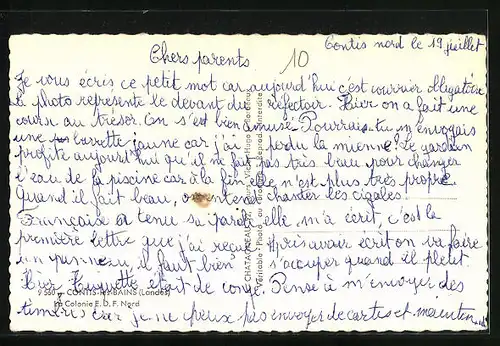 Contis nord le 19 juillet
Chers parents
10
Je vous écris ce petit mot car aujourd'hui c'est courrier obligatoire
la photo représente le devant du réfectoir. Hier on a fait une
course au trésor. On s'est bien amusé. Pourrais-tu m'envoyais
une bavette jaune car j'ai perdu la mienne. Le gardien
profite aujourd'hui qu'il ne fait pas très beau pour changer
l'eau de la piscine car à la fin elle n'est plus très propre.
Quand il fait beau, on entend chanter les cigales.
Françoise a tenu sa parole elle m'a écrit, c'est la
première lettre que j'ai reçue
Après avoir écrit on va faire
un panneau il faut bien s'occuper quand il pleut
Hier Huguette était de congé. Pense à m'envoyer des
timbres car je ne peux pas envoyer de cartes et mainten
CONTIS-LES-BAINS (Landes)
La Colonie E.D.F. Nord
Véritable Photo au
Reprod. interdite